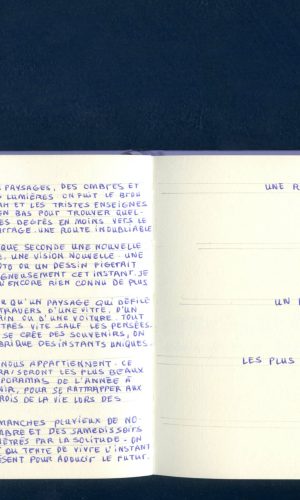 PAYSAGES, DES OMBRES ET
LUMIÈRES ON FUIT LE BROU
AH ET LES TRISTES ENSEIGNES
EN BAS POUR TROUVER QUEL-
ES DEGRÉS EN MOINS VERS LE
UNE ROUTE INOUBLIABLE
QUE SECONDE UNE NOUVELLE
E, UNE VISION NOUVELLE. UNE
OTO OU UN DESSIN FIGERAIT
GNEUSEMENT CET INSTANT. JE
'ENCORE RIEN CONNU DE PLUS
R QU'UN PAYSAGE QUI DÉFILE
TRAVERS D'UNE VITRE, D'UN
AIN OU D'UNE VOITURE. TOUT
TRÈS VITE SAUF LES PENSÉES.
SE CRÉE DES SOUVENIRS, ON
BRIQUE DES INSTANTS UNIQUES.
NOUS APPARTIENNENT. CE
RA/SERONT LES PLUS BEAUX
PORAMAS DE L'ANNÉE À
IR, POUR SE RATTRAPER AUX
ROIS DE LA VIE LORS DES
MANCHES PLUVIEUX DE NO-
MBRE ET DES SAMEDIS SOIRS
ÉTRÉS PAR LA SOLITUDE. ON
OU TENTE DE VIVRE L'INSTANT
ÉSENT POUR ADOUCIR LE FUTUR.
UNE R
UN
LES PLUS